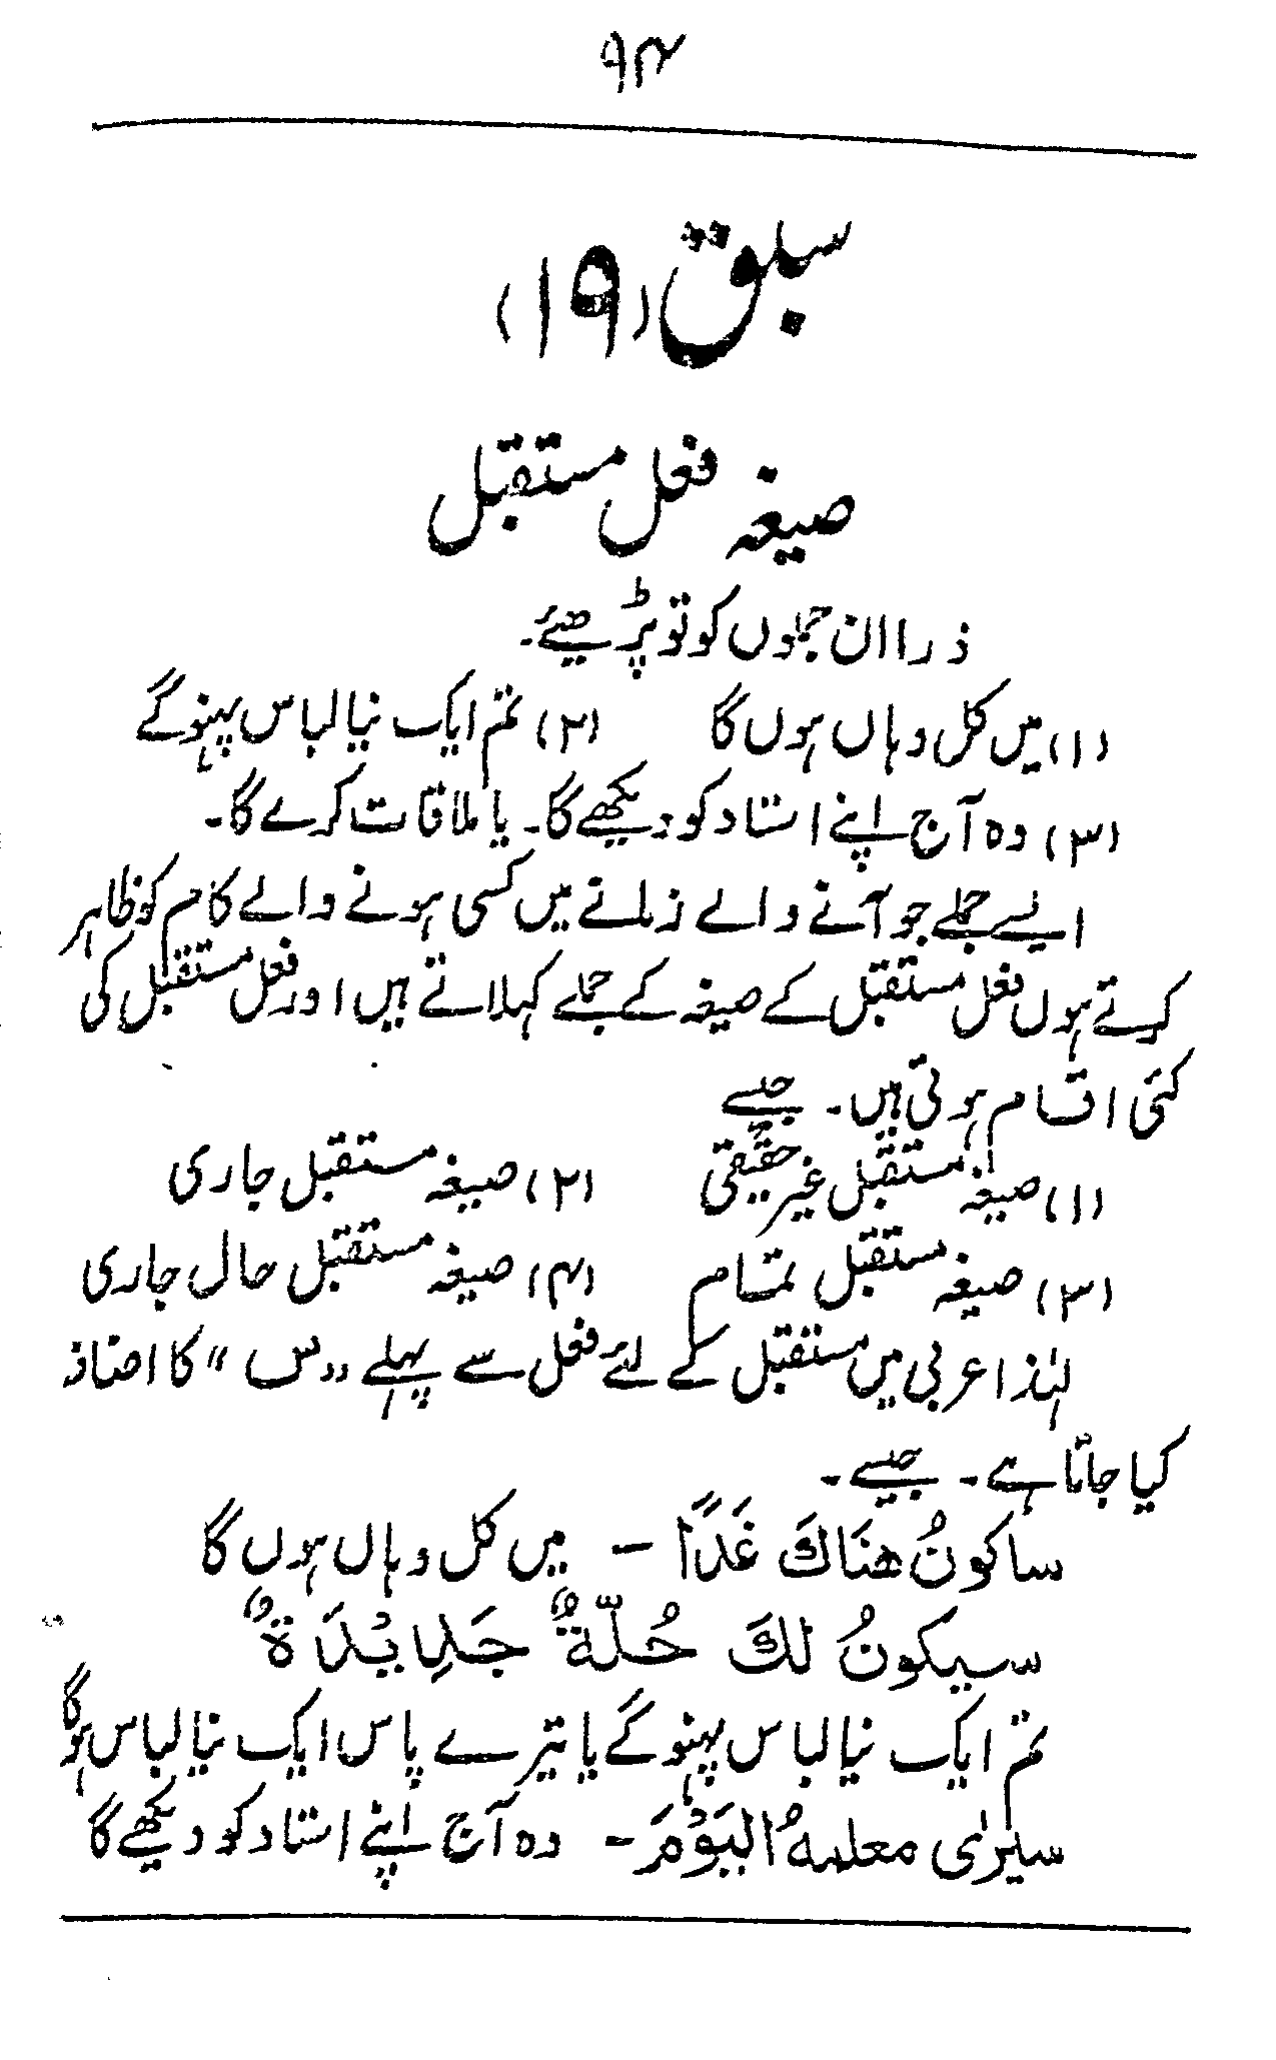 ۹۴
سبق (۱۹)
صیغہ فعل مستقبل
ذرا ان جملوں کو تو پڑھیئے۔
(۱) میں کل وہاں ہوں گا (۲) تم ایک نیا لباس پہنو گے
(۳) وہ آج اپنے استاد کو دیکھے گا۔ یا ملاقات کرے گا۔
ایسے جملے جو آنے والے زمانے میں کسی ہونے والے کام کو ظاہر
کرتے ہوں فعل مستقبل کے صیغہ کے جملے کہلاتے ہیں اور فعل مستقبل کی
کئی اقسام ہوتی ہیں۔ جیسے
(۱) صیغہ مستقبل غیر حقیقی (۲) صیغہ مستقبل جاری
(۳) صیغہ مستقبل تمام (۴) صیغہ مستقبل حال جاری
لہٰذا عربی میں مستقبل کے لئے فعل سے پہلے ،،س" کا اضافہ
کیا جاتا ہے۔ جیسے۔
ساکونُ هنَاكَ غَدًا – میں کل وہاں ہوں گا
سیکونُ لكَ حُلّةٌ جَدِيْدَةٌ
تم ایک نیا لباس پہنو گے یا تیرے پاس ایک نیا لباس ہوگا
سیرٰی معلمهُ الیَوْمَ – وہ آج اپنے استاد کو دیکھے گا